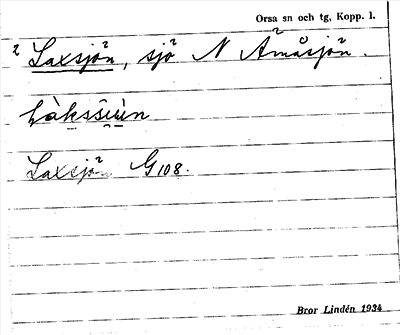 Orsa sn och tg, Kopp. l.
2 Laxsjön, sjö N Ämåsjön.
Laxsjön G 108.
Bror Lindén 1934